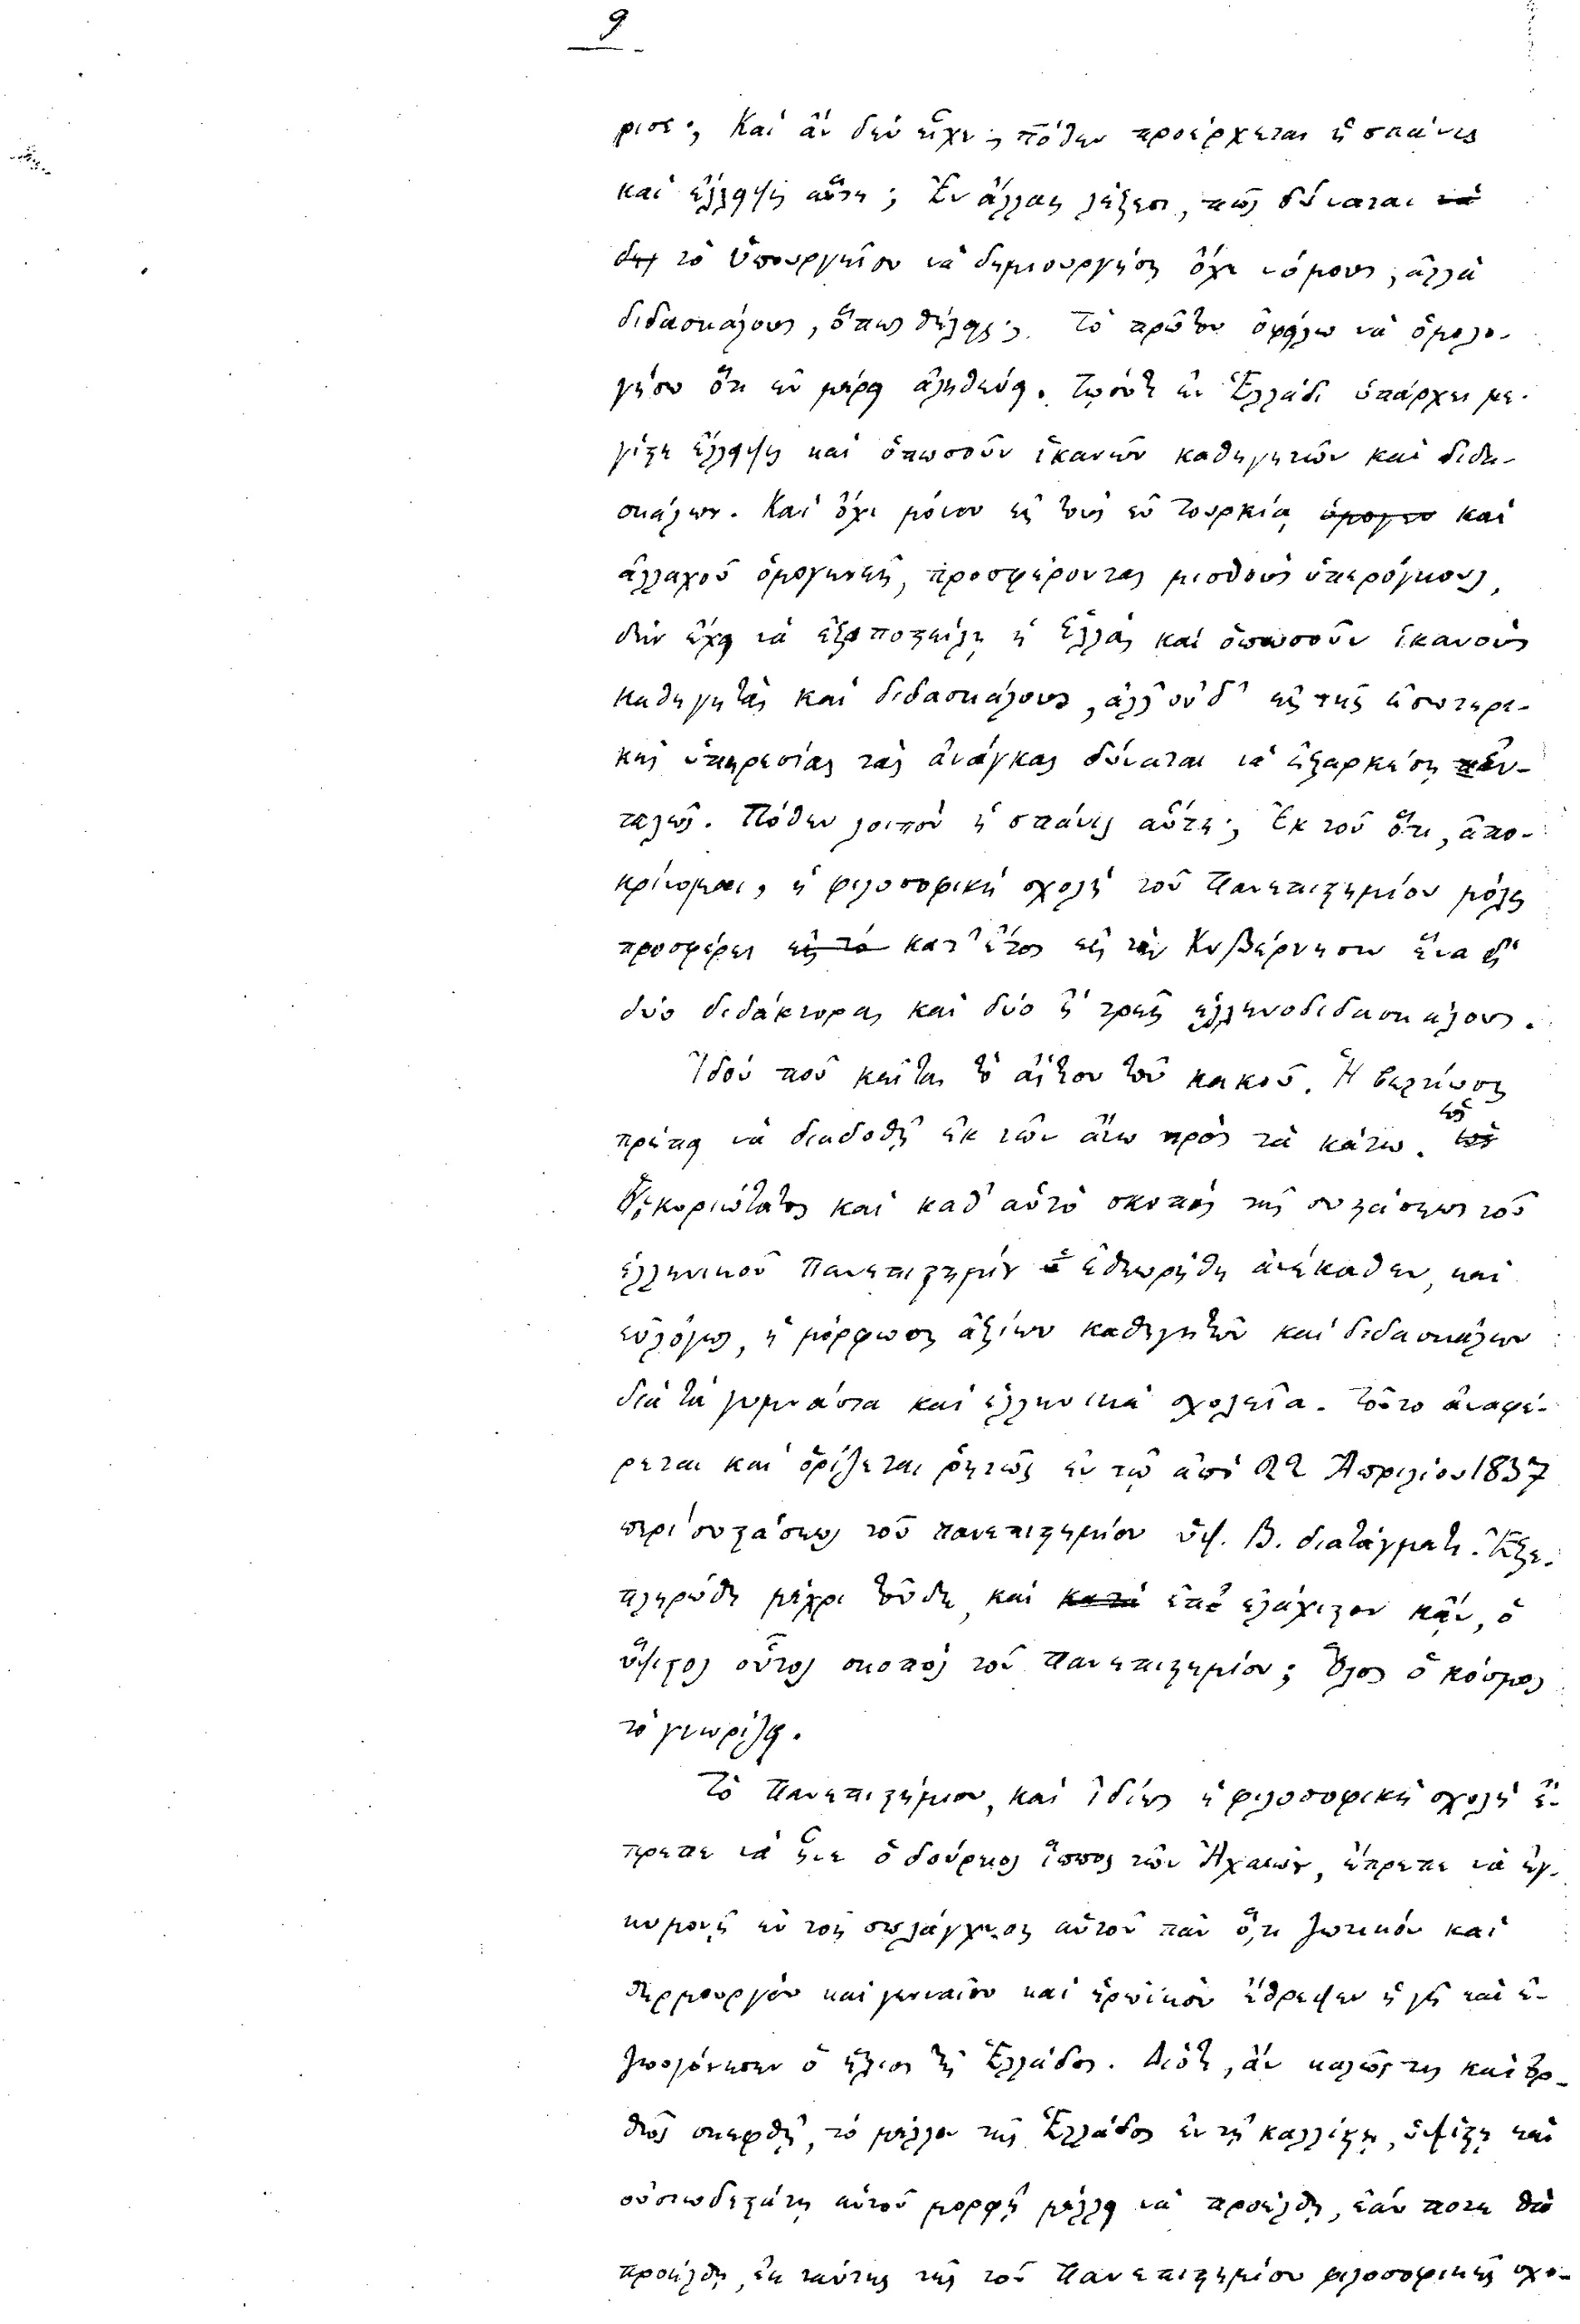 9
ρισε; Καὶ ἂν δὲν εἶχε, πόθεν προέρχεται ἡ σπάνις
καὶ ἔλλειψις αὕτη; Ἐν ἄλλαις λέξεσι, πῶς δύναται νὰ
τὸ Ὑπουργεῖον νὰ δημιουργήσῃ ὄχι νόμους, ἀλλὰ
διδασκάλους, ὅπως θέλεις; Τὸ πρῶτον ὀφείλω νὰ ὁμολο-
γήσω ὅτι ἐν μέρει ἀληθεύει. Τῳόντι ἐν Ἑλλάδι ὑπάρχει με-
γίστη ἔλλειψις καὶ ὁπωσοῦν ἱκανῶν καθηγητῶν καὶ διδα-
σκάλων. Καὶ ὄχι μόνον εἰς τοὺς ἐν Τουρκίᾳ ὁμογεν καὶ
ἀλλαχοῦ ὁμογενεῖς, προσφέροντας μισθοὺς ὑπερόγκους,
δὲν ἔχει νὰ ἐξαποστείλῃ ἡ Ἑλλὰς καὶ ὁπωσοῦν ἱκανοὺς
καθηγητὰς καὶ διδασκάλους, ἀλλ' οὐδ' εἰς τῆς ἐσωτερι-
κῆς ὑπηρεσίας τὰς ἀνάγκας δύναται νὰ ἐξαρκέσῃ παν-
τελῶς. Πόθεν λοιπὸν ἡ σπάνις αὕτη; Ἐκ τοῦ ὅτι, ἀπο-
κρίνομαι, ἡ φιλοσοφικὴ σχολὴ τοῦ Πανεπιστημίου μόλις
προσφέρει εἰς τὸ κατ' ἔτος εἰς τὴν Κυβέρνησιν ἕνα ἢ
δύο διδάκτορας καὶ δύο ἢ τρεῖς ἑλληνοδιδασκάλους.
Ἰδοὺ ποῦ κεῖται τὸ αἴτιον τοῦ κακοῦ. Ἡ βελτίωσις
πρέπει νὰ διαδοθῇ ἐκ τῶν ἄνω πρὸς τὰ κάτω. Ὡς
κυριώτατος καὶ καθ' αὑτὸ σκοπὸς τῆς συστάσεως τοῦ
ἑλληνικοῦ Πανεπιστημίου ἐθεωρήθη ἀνέκαθεν, καὶ
εὐλόγως, ἡ μόρφωσις ἀξίων καθηγητῶν καὶ διδασκάλων
διὰ τὰ γυμνάσια καὶ ἑλληνικὰ σχολεῖα. Τοῦτο ἀναφέ-
ρεται καὶ ὁρίζεται ῥητῶς ἐν τῷ ἀπὸ 22 Ἀπριλίου 1837
περὶ συστάσεως τοῦ πανεπιστημίου ὑψ. Β. διατάγματι. Ἐξε-
πληρώθη μέχρι τοῦδε, καὶ κατὰ ἐπ' ἐλάχιστον κἄν, ὁ
ὕψιστος οὗτος σκοπὸς τοῦ Πανεπιστημίου; Ὅλος ὁ κόσμος
τὸ γνωρίζει.
Τὸ Πανεπιστήμιον, καὶ ἰδίως ἡ φιλοσοφικὴ σχολὴ ἔ-
πρεπε νὰ ἦνε ὁ δούρειος ἵππος τῶν Ἀχαιῶν, ἔπρεπε νὰ ἐγ-
κυμονῇ ἐν τοῖς σπλάγχνοις αὐτοῦ πᾶν ὅ,τι ζωτικόν καὶ
θερμουργὸν καὶ γενναῖον καὶ ἡρωϊκὸν ἔθρεψεν ἡ γῆ καὶ ἐ-
ζωογόνησεν ὁ ἥλιος τῆς Ἑλλάδος. Διότι, ἂν καλῶς τις καὶ ὀρ-
θῶς σκεφθῇ, τὸ μέλλον τῆς Ἑλλάδος ἐν τῇ καλλίστῃ, ὑψίστῃ καὶ
οὐσιωδεστάτῃ αὐτοῦ μορφῇ μέλλει νὰ προέλθῃ, ἐάν ποτε θὰ
προέλθῃ, ἐκ ταύτης τῆς τοῦ Πανεπιστημίου φιλοσοφικῆς σχο-